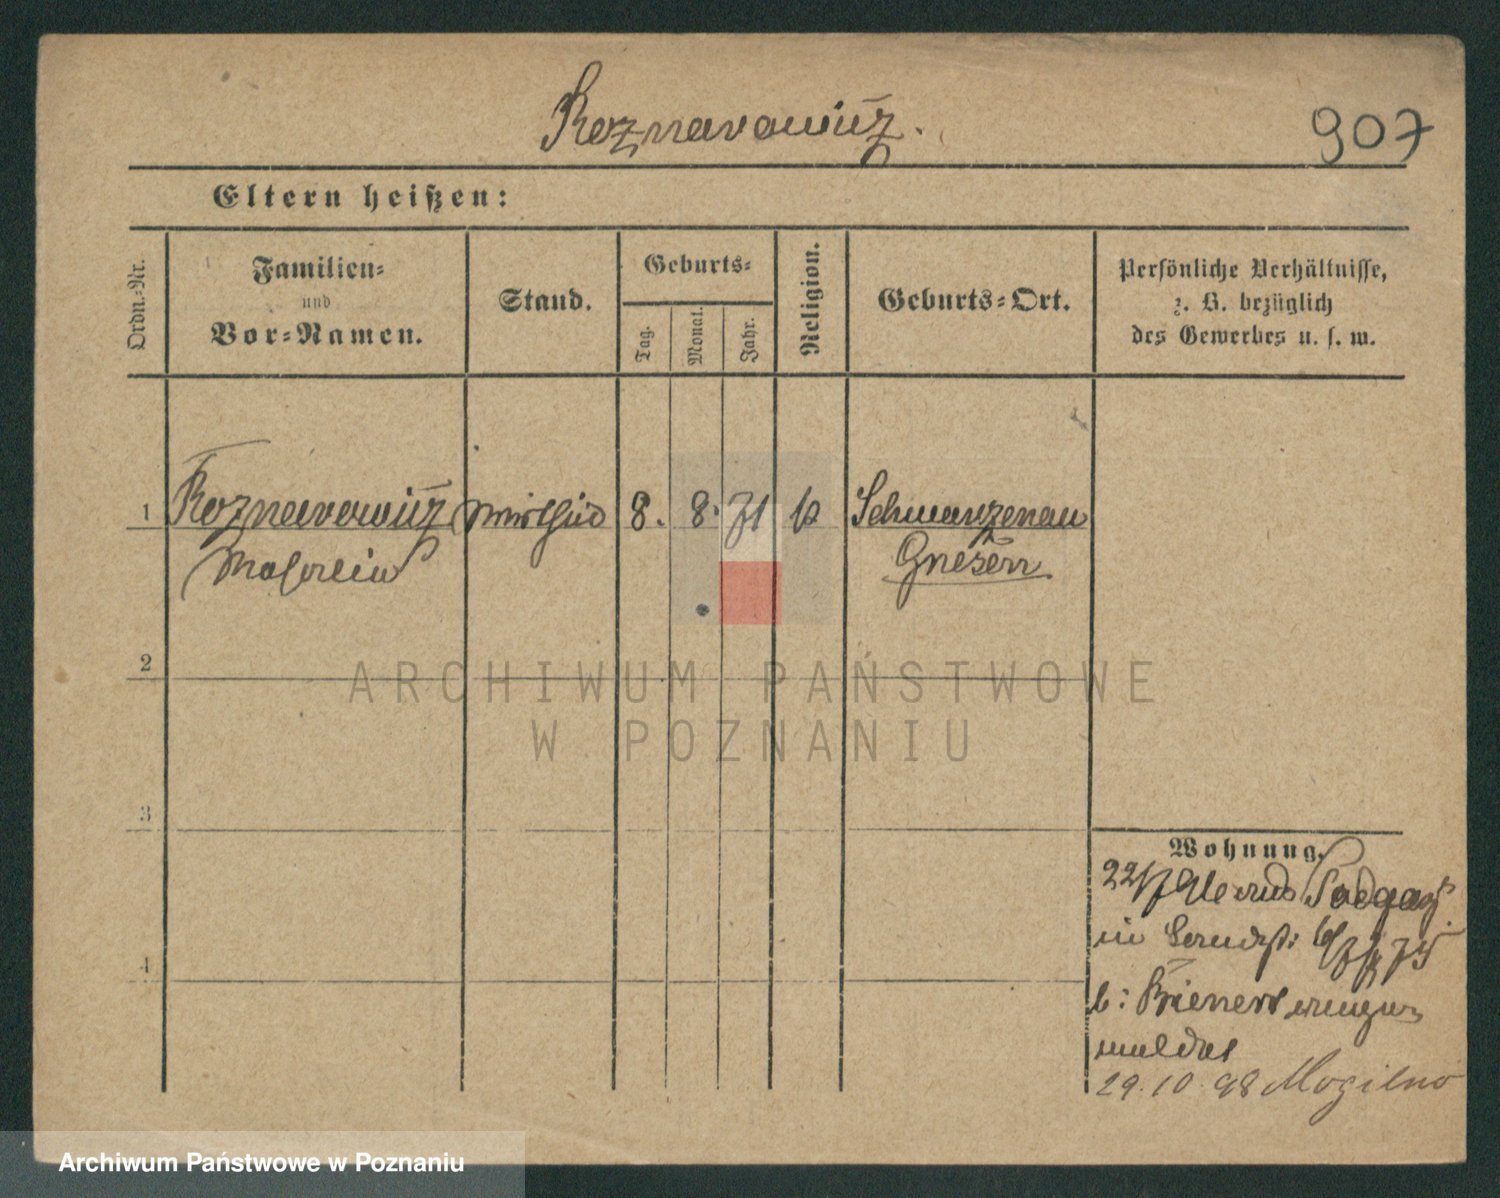 Roznarowicz.
907
Eltern heißen:
Ordn.-Nr.
Familien-
und
Vor-Namen.
Stand.
Geburts-
Tag.
Monat.
Jahr.
Religion.
Geburts-Ort.
Persönliche Verhältnisse,
z. B. bezüglich
des Gewerbes u. s. w.
1 Roznarowicz 8. 8. 71 Schwarzenau
Gnesen
2
ARCHIWUM PAŃSTWOWE
W POZNANIU
3
Wohnung.
22/7 91
in
4
b:
meldet
29.10.98 Mogilno
Archiwum Państwowe w Poznaniu